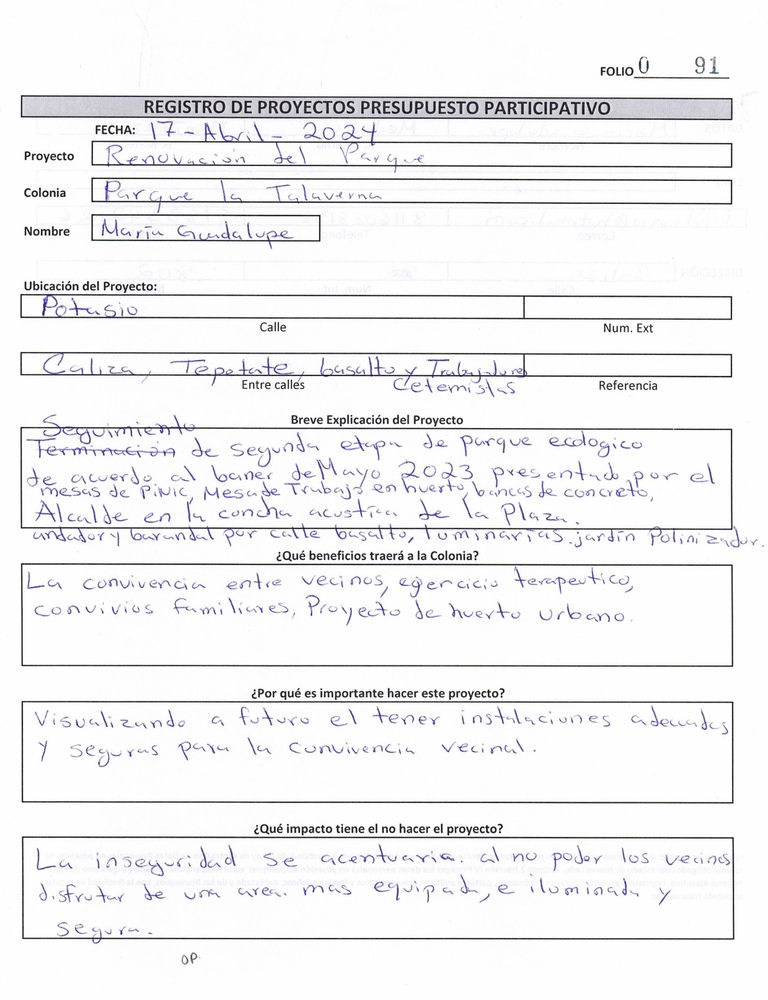 FOLIO 0 91
REGISTRO DE PROYECTOS PRESUPUESTO PARTICIPATIVO
FECHA: 17-Abril-2024
Proyecto Renovación del Parque
Colonia Parque la Talaverna
Nombre María Guadalupe
Ubicación del Proyecto:
Potasio
Calle Num. Ext
Caliza, Tepetate, basalto y Trabajadores
Entre calles Cetemistas Referencia
Breve Explicación del Proyecto
Seguimiento
Terminación de segunda etapa de parque ecologico
de acuerdo al baner de Mayo 2023 presentado por el
mesas de PiNic, Mesa de Trabajo en huerto, bancas de concreto,
Alcalde en la concha acustica de la Plaza.
andador y barandal por calle basalto, luminarias. jardín Polinizador.
¿Qué beneficios traerá a la Colonia?
La convivencia entre vecinos, ejercicio terapeutico,
convivios familiares, Proyecto de huerto urbano.
¿Por qué es importante hacer este proyecto?
Visualizando a futuro el tener instalaciones adecuadas
y seguras para la convivencia vecinal.
¿Qué impacto tiene el no hacer el proyecto?
La inseguridad se acentuaria. al no poder los vecinos
disfrutar de una area. mas equipada, e iluminada y
segura.
OP.